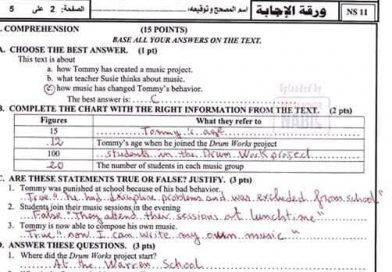 الصفحة: 2 على 5 اسم المصحح وتوقيعه: ورقة الإجابة NS 11
. COMPREHENSION (15 POINTS)
BASE ALL YOUR ANSWERS ON THE TEXT.
A. CHOOSE THE BEST ANSWER. (1 pt)
This text is about
a. how Tommy has created a music project.
b. what teacher Susie thinks about music.
c how music has changed Tommy's behavior.
The best answer is: C
Uploaded by
B. COMPLETE THE CHART WITH THE RIGHT INFORMATION FROM THE TEXT. (2 pts)
Figures What they refer to
15 Tommy's age
12 Tommy's age when he joined the Drum Works project
100 students in the Drum Work project
20 The number of students in each music group
C. ARE THESE STATEMENTS TRUE OR FALSE? JUSTIFY. (3 pts)
1. Tommy was punished at school because of his bad behavior.
True "he has discipline problems and was excluded from school"
2. Students join their music sessions in the evening
False "They attend their sessions at lunchtime"
3. Tommy is now able to compose his own music.
"True" now I can write my own music "
D. ANSWER THESE QUESTIONS. (3 pts)
1. Where did the Drum Works project start?
At the Warren School